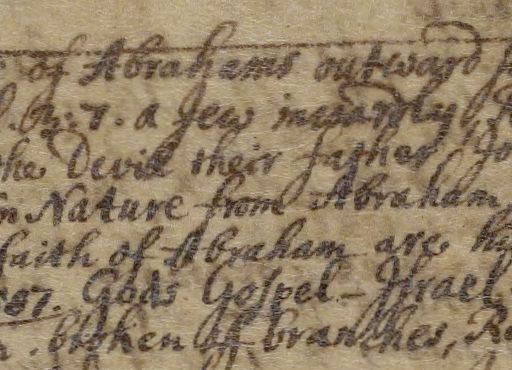 of Abrahams outward
7. a Jew inwardly,
the Devil their father, Jo
in Nature from Abraham
faith of Abraham are
87. Gods Gospel-Israel
broken of branches, Ro